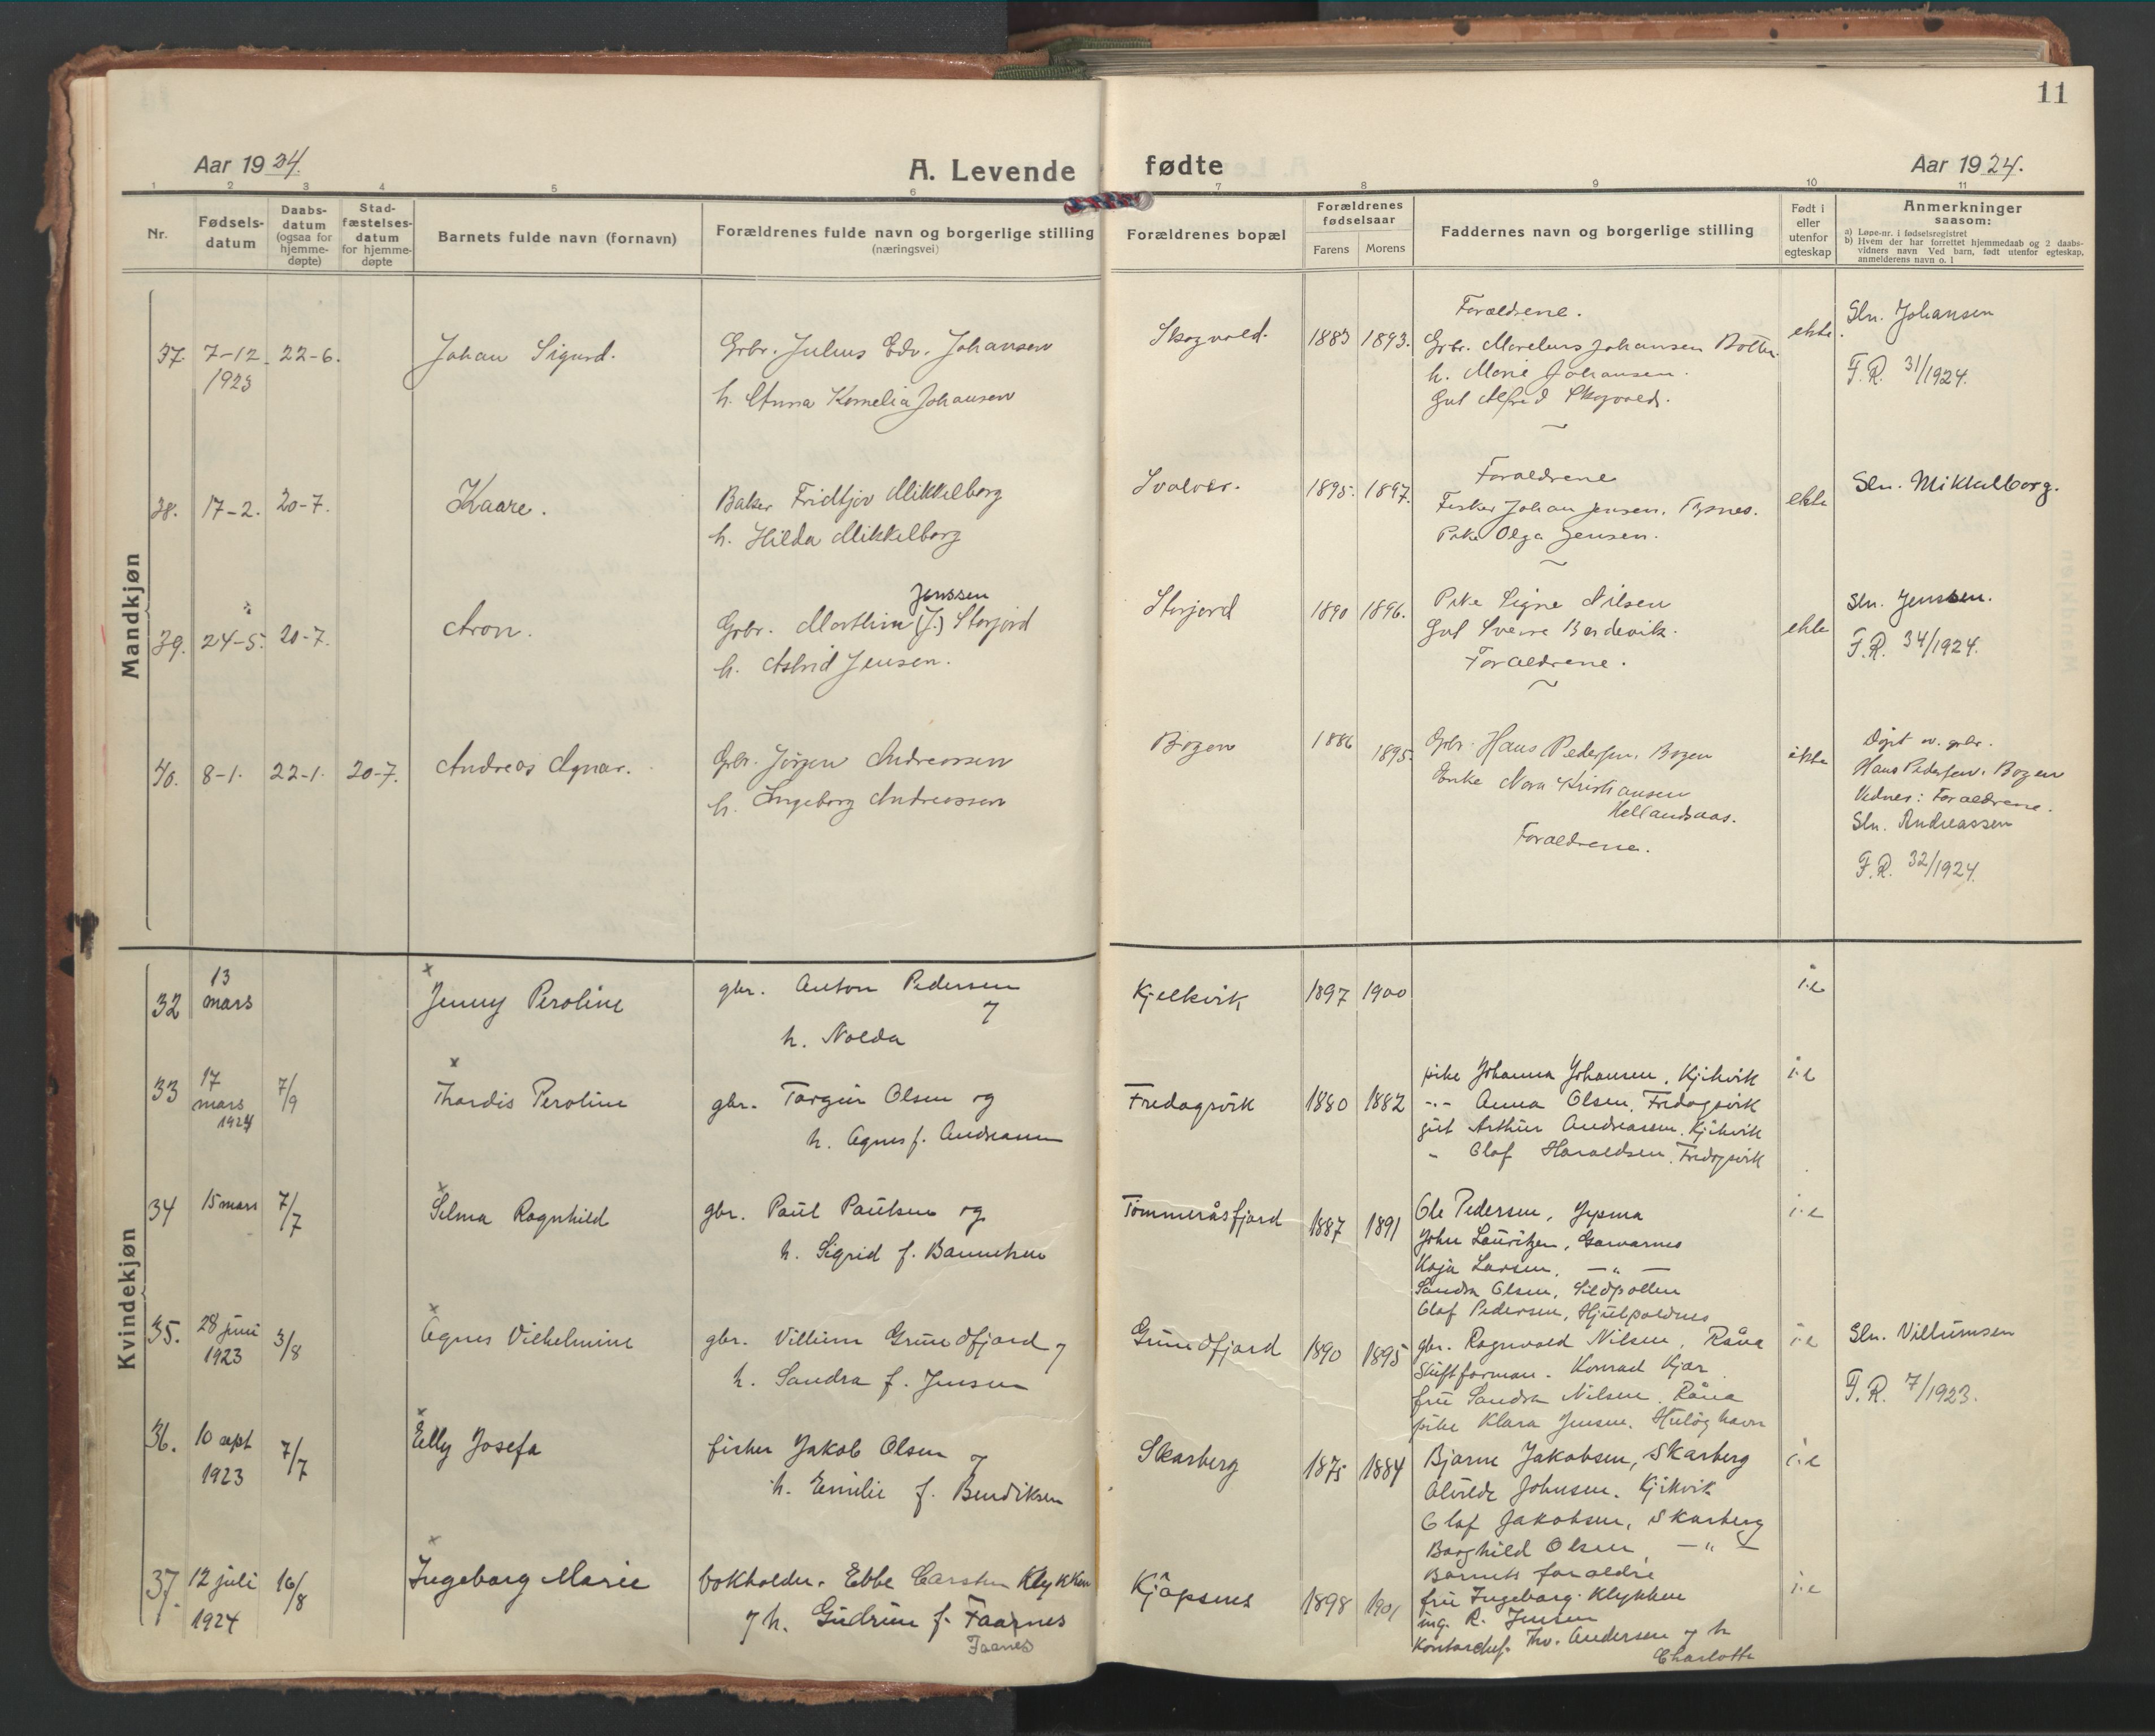 11
Aar 1924.
A. Levende fødte
Aar 1924.
1 2 3 4 5 6 7 8 9 10 11
Nr.
Fødsels-
datum
Daabs-
datum
(ogsaa for
hjemme-
døpte)
Stad-
fæstelses-
datum
for hjemme-
døpte
Barnets fulde navn (fornavn)
Forældrenes fulde navn og borgerlige stilling
(næringsvei)
Forældrenes bopæl
Forældrenes
fødselsaar
Farens Morens
Faddernes navn og borgerlige stilling
Født i
eller
utenfor
egteskap
Anmerkninger
saasom:
a) Løpe-nr. i fødselsregistret
b) Hvem der har forrettet hjemmedaab og 2 daabs-
vidners navn Ved barn, født utenfor egteskap,
anmelderens navn o. l
Mandkjøn
37. 7-12 22-6.
1923
Johan Sigurd.
Grbr. Julius Edv. Johansen
h. Anna Kornelia Johansen
Skogvold.
1883 1893.
Forældrene.
Grbr. Marelius Johansen
h. Marie Johansen.
Gut Alfred Skogvold.
ekte.
Sln. Johansen
F.R. 31/1924.
38. 17-2. 20-7.
Kaare.
Baker Fridtjov Mikkelborg
h. Hilda Mikkelborg
Svolvær.
1895. 1897.
Forældrene
Fisker Johan Jensen,
Pike Olga Jensen.
ekte
Sln. Mikkelborg.
39. 24-5. 20-7.
Aron.
Jenssen
Grbr. Marthin (J.) Storjord
h. Astrid Jensen.
Storjord
1890 1896.
Pike Signe Nilsen
Gut Sverre Bardevik.
Forældrene.
ekte
Sln. Jenssen.
F.R. 34/1924.
40. 8-1. 22-1. 20-7.
Andreas Agnar.
Grbr. Jørgen Andreassen
h. Ingeborg Andreassen
Bogen
1886 1895.
Grbr. Hans Pedersen, Bogen
Enke Nora Kristiansen
Hellandsaas.
Forældrene.
ekte
Døpt av grbr.
Hans Pedersen, Bogen
Vidner: Forældrene.
Sln. Andreassen
F.R. 32/1924.
Kvindekjøn
32 13
mars
x
Jenny Peroline
gbr. Anton Pedersen
7
h. Nolda
Kjelkvik
1897 1900
i.e
33 17
mars
1924
7/9
x
Thordis Peroline
gbr. Torgeir Olsen og
h. Agnes f. Andreassen
Fredagsvik
1880 1882
pike Johanna Johansen, Kjikvik
-"- Anna Olsen, Fredagsvik
gut Arthur Andreassen, Kjikvik
- Olaf Haraldsen, Fredagsvik
i.e
34 15 mars 7/7
x
Selma Ragnhild
gbr. Paul Paulsen og
h. Sigrid f.
Tømmeråsfjord
1887 1891
Ole Pedersen,
John Lauritzen,
Kaja Larsen, —"—
Sandra Olsen, Sildpollen
Olaf Pedersen,
i.e
35. 28 juni
1923
3/8
x
Agnes Vilhelmine
gbr. Villum Grundfjord 7
h. Sandra f. Jensen
Grundfjord
1890 1895
gbr. Ragnvald Nilsen, Råna
Skiftforman. Konrad Kjær
frù Sandra Nilsen, Råna
pike Klara Jensen,
i.e
Sln. Villumsen
F.R. 7/1923.
36. 10 sept
1923
7/7
x
Elly Josefa
fisker Jakob Olsen 7
h. Emilie f. Bendiksen
Skarberg
1875 1884
Bjarne Jakobsen, Skarberg
Alvilde Johnsen, Kjikvik
Olaf Jakobsen, Skarberg
Borghild Olsen, —"—
i.e
37. 12 juli
1924
16/8
x
Ingeborg Marie
bokholder. Ebbe Carsten Klykken
7 h. Gudrun f. Faarnes
Faanes
Kjøpsnes
1898 1901
Barnets foraldre
frù Ingeborg Klykken
ing. R. Jensen
Kontorchef. Thv. Andersen 7 h
Charlotte
i.e